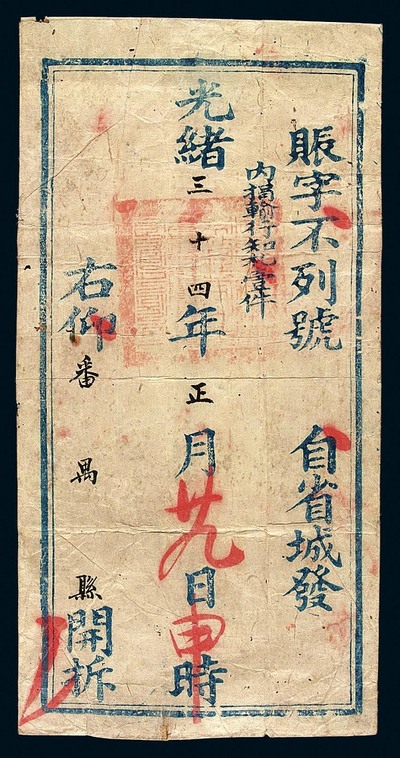 賑字不列號　自省城發
內捐輸行知札壹件
光緒三十四年正月廿九日申時
右仰番禺縣開拆